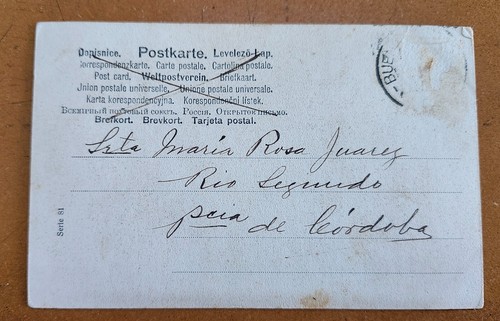 Dopisnice. Postkarte. Levelező-Lap.
Korrespondenzkarte. Carte postale. Cartolina postale.
Post card. Weltpostverein. Briefkaart.
Union postale universelle. Unione postale universale.
Karta korespondencyjna. Korespondenční lístek.
Всемірный почтовый союзъ. Россія. Открытое письмо.
Brefkort. Brevkort. Tarjeta postal.
BUE
Srta María Rosa Juarez
Rio Segundo
pcia de Córdoba
Serie 81